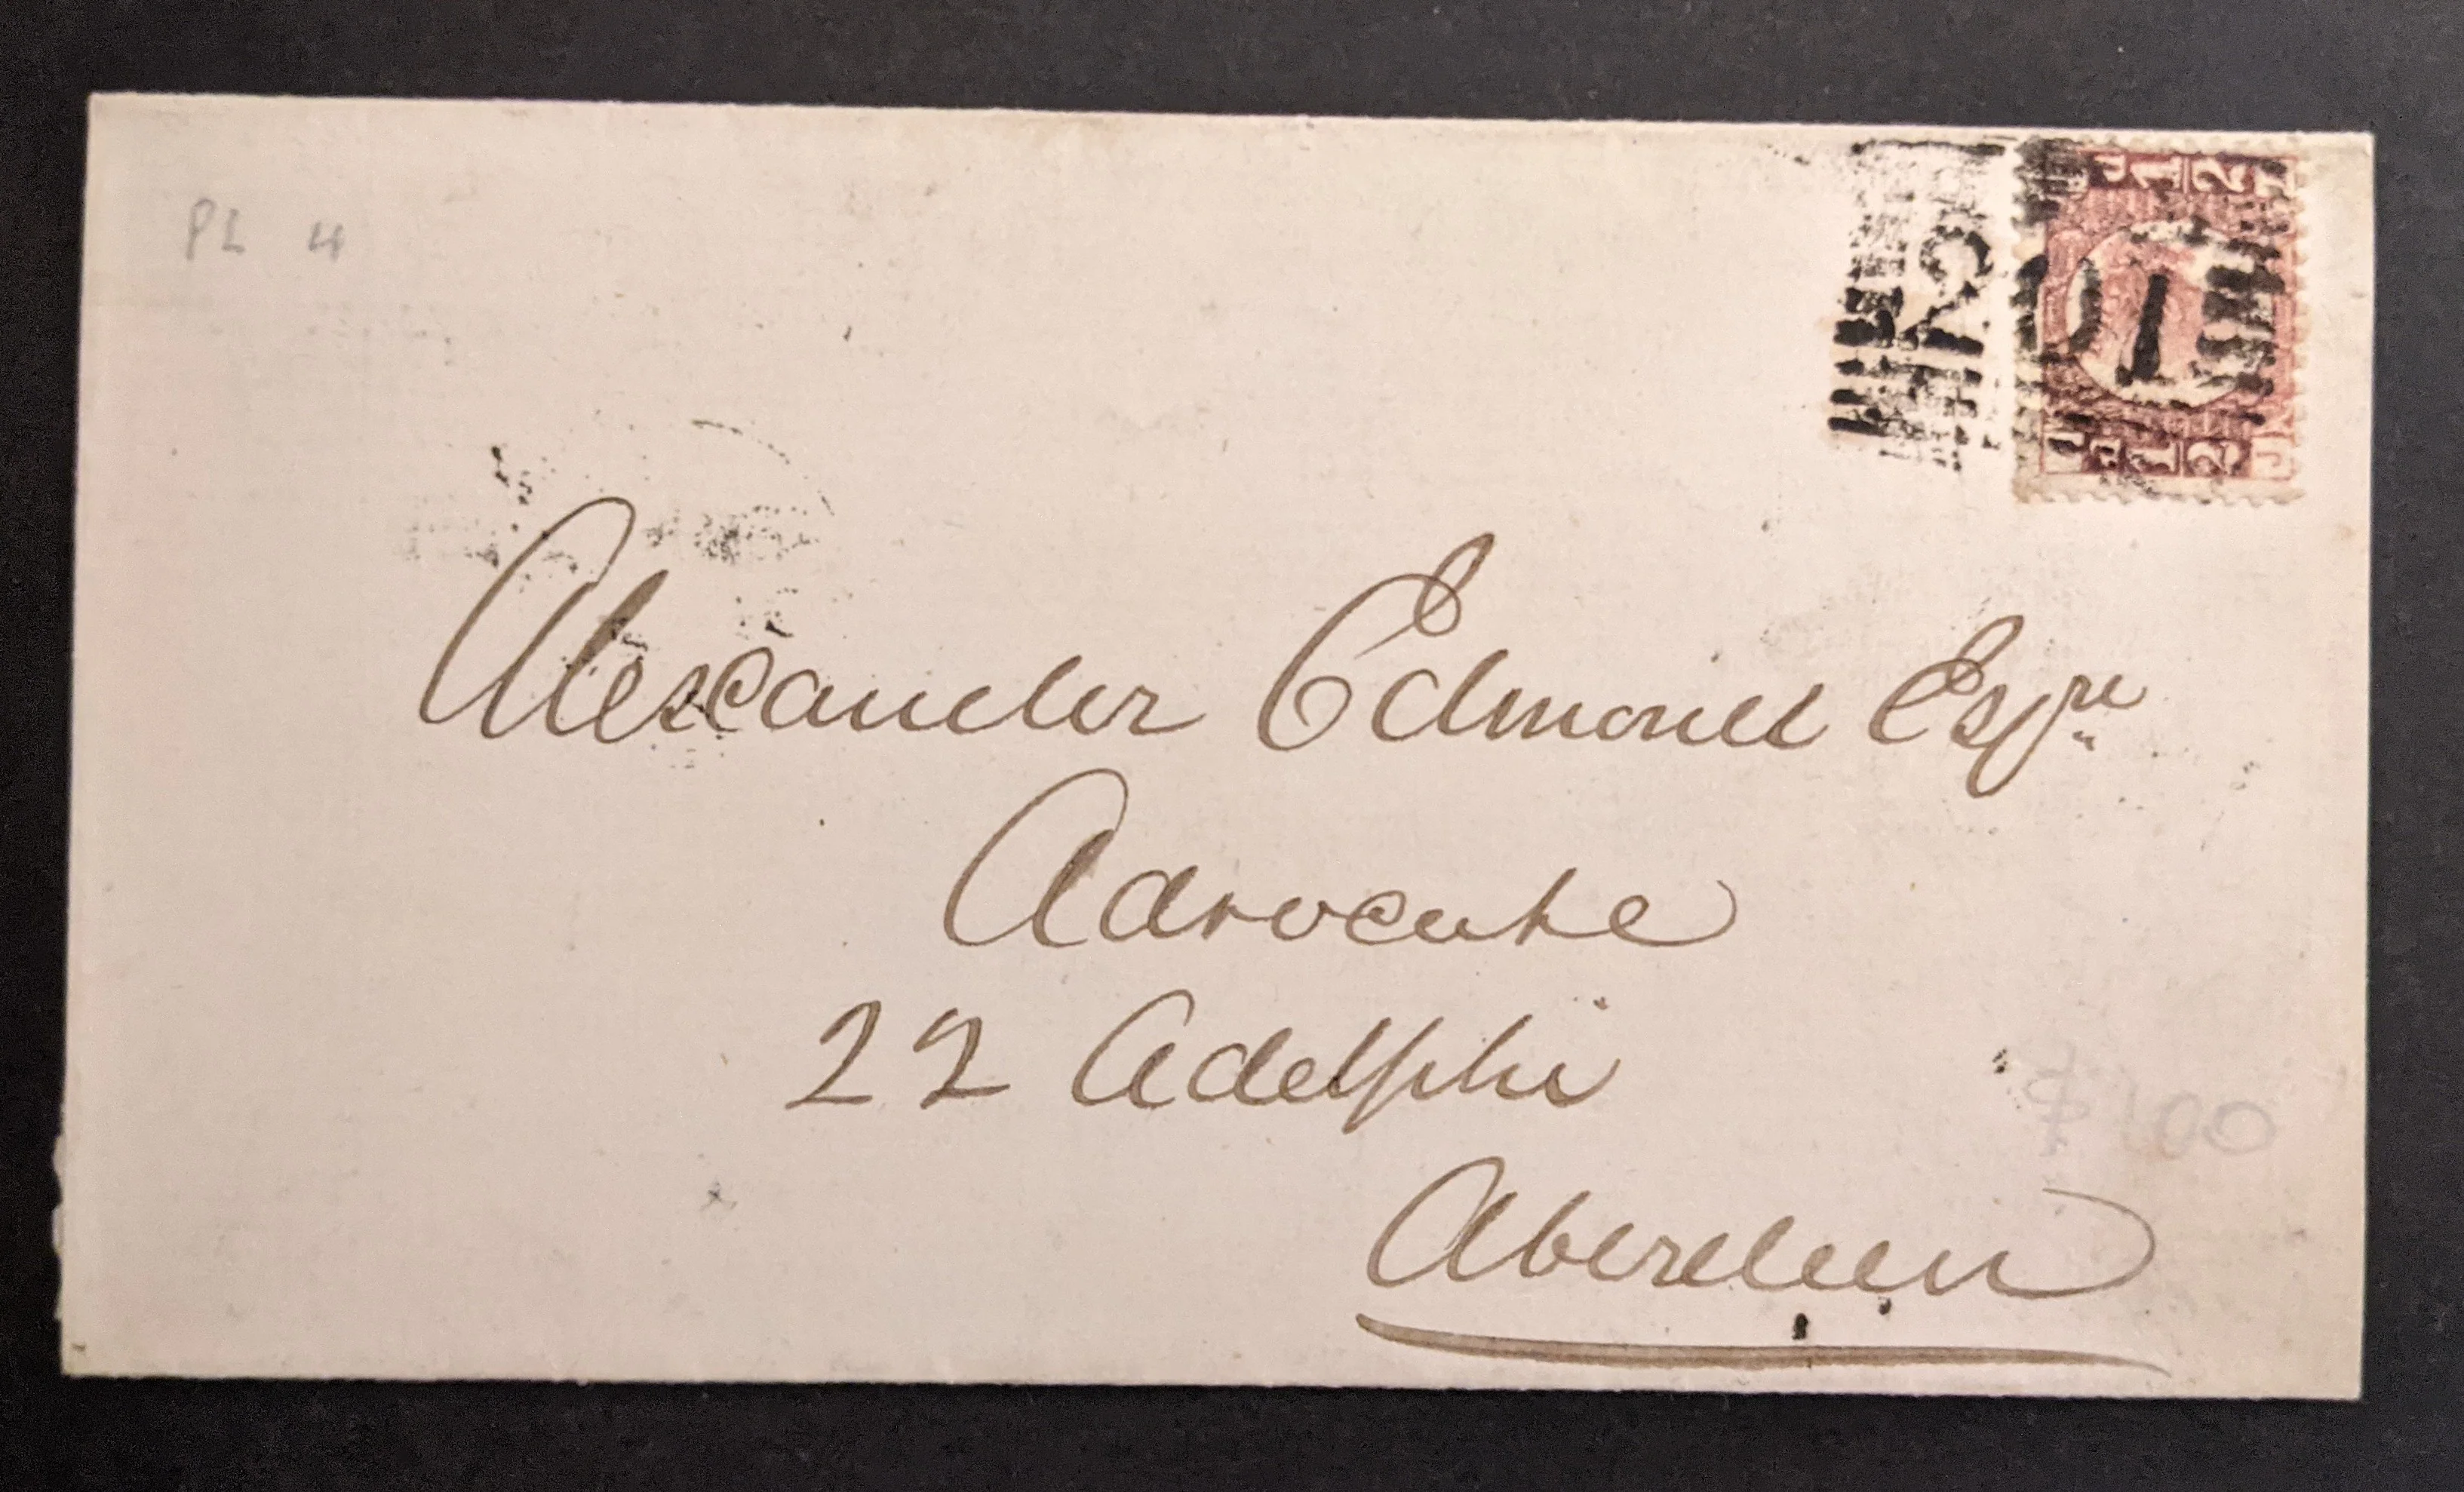 PL 4
201
Alexander Edmond Esqre
Advocate
22 Adelphi
$100
Aberdeen